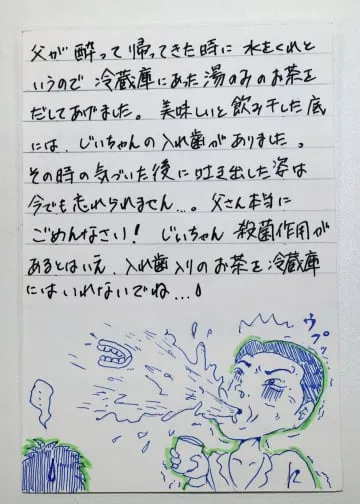 父が酔って帰ってきた時に水をくれと
いうので冷蔵庫にあった湯のみのお茶を
だしてあげました。美味しいと飲み干した底
には、じいちゃんの入れ歯がありました。
その時の気づいた後に吐き出した姿は
今でも忘れられません...。父さん本当に
ごめんなさい！じいちゃん殺菌作用が
あるとはいえ、入れ歯入りのお茶を冷蔵庫
にはいれないでね...!
ウプッ